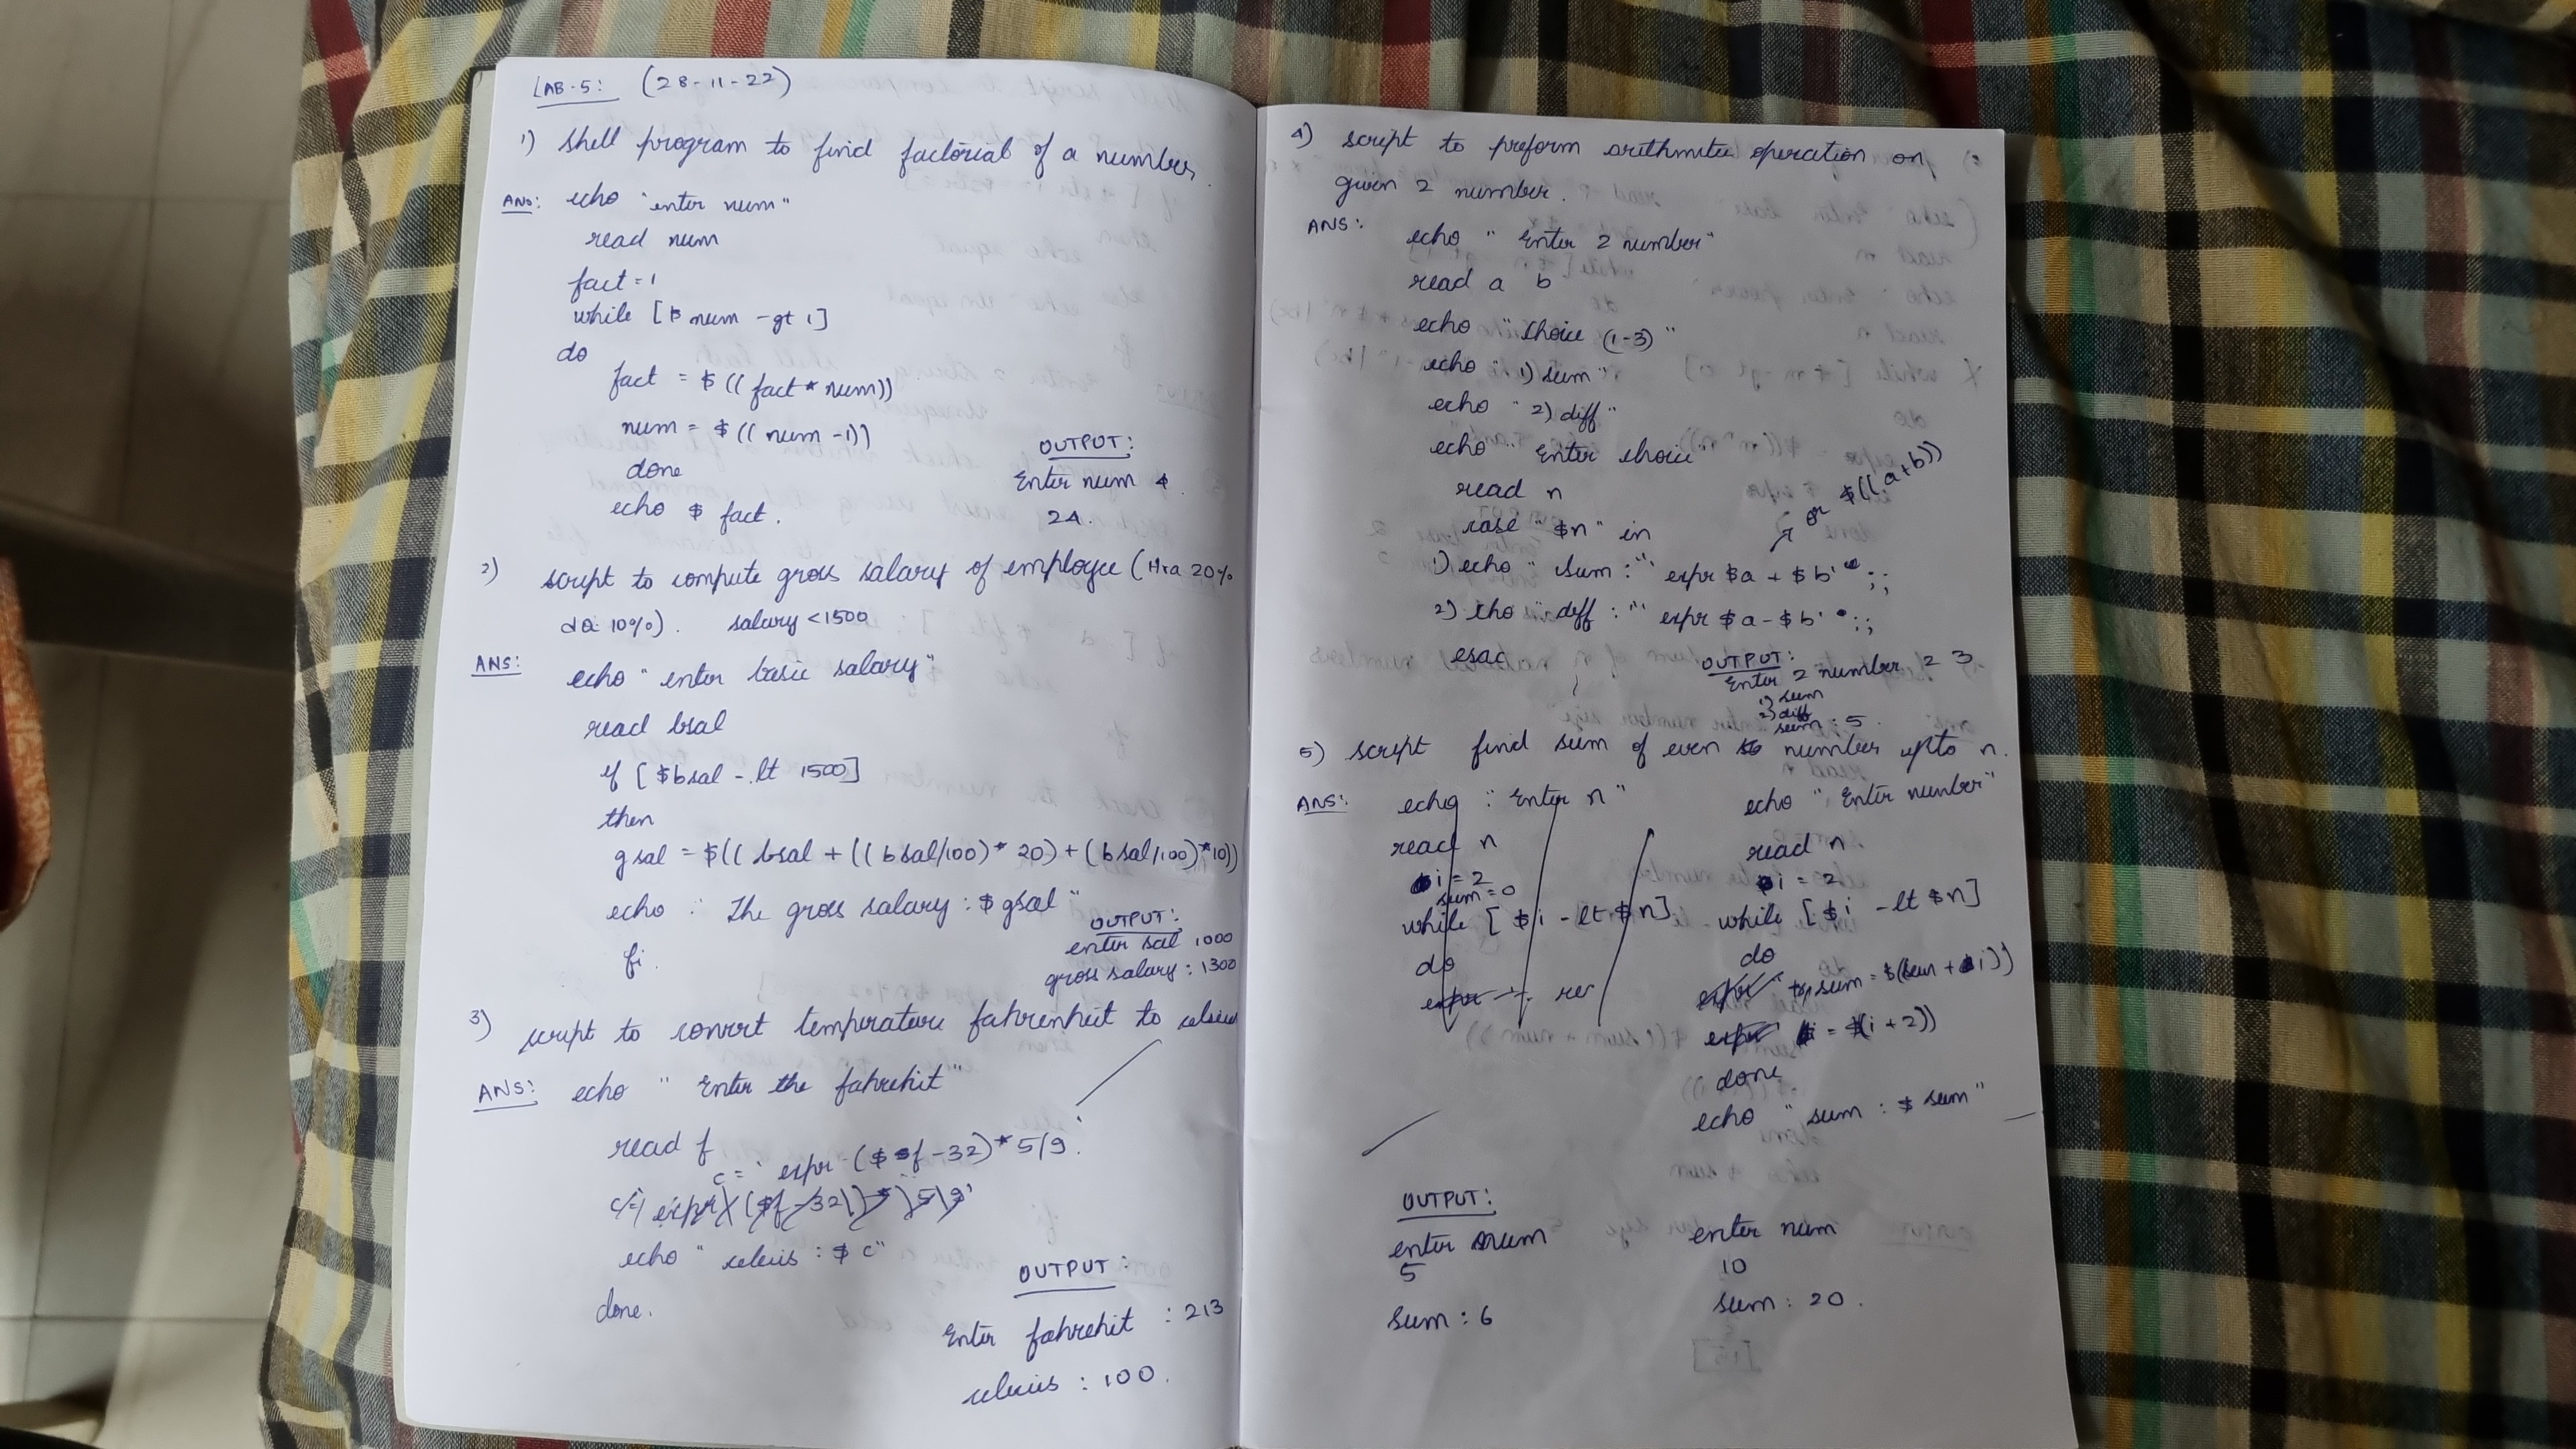 LAB-5: (28-11-22)
1) Shell program to find factorial of a number.
ANS: echo "enter num"
read num
fact=1
while [$num -gt 1]
do
fact = $((fact*num))
num = $((num-1))
done
echo $ fact.
OUTPUT:
Enter num 4.
24.
2) script to compute gross salary of employee (Hra 20%
da: 10%). salary<1500
ANS: echo "enter basic salary"
read bsal
if [$bsal -lt 1500]
then
gsal = $((bsal + ((bsal/100)*20)+(bsal/100)*10))
echo "The gross salary: $gsal"
fi.
OUTPUT:
enter sal 1000
gross salary: 1300
3) script to convert temperature fahrenheit to celsius
ANS: echo "Enter the fahrehit"
read f
c=`expr ($f-32)*5/9.
echo "celcius: $c"
done.
OUTPUT:
Enter fahrehit: 213
celcius: 100.
4) script to preform arithmetic operation on
given 2 number.
ANS: echo "Enter 2 number"
read a b
echo "choice (1-3)"
echo "1) sum"
echo "2) diff"
echo "Enter choice
read n
case "$n" in
1) echo "sum:" `expr $a + $b`;;
or $((a+b))
2) echo "diff:" `expr $a - $b`;;
esac
OUTPUT:
Enter 2 number 2 3
1) sum
2) diff
sum: 5.
5) script find sum of even number upto n.
ANS: echo "Enter n"
read n
i=2
sum=0
while [$i -lt $n]
do
echo "Enter number"
read n
i=2
while [$i -lt $n]
do
sum=$((sum+i))
i=$((i+2))
done
echo "sum: $sum"
OUTPUT:
enter num
5
sum: 6
enter num
10
sum: 20.